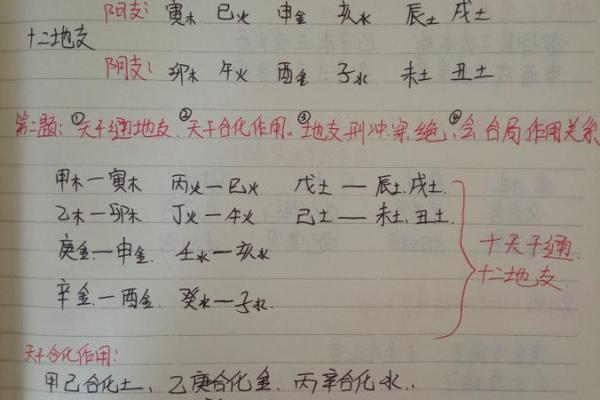 阳支: 寅木 巳火 申金 亥水 辰土 戌土
十二地支
阴支: 卯木 午火 酉金 子水 未土 丑土
第二题: ①天干通地支、②天干合化作用。③地支刑冲害绝、④会合局作用关系
甲木—寅木 丙火—巳火 戊土—辰土.戌土.
乙木—卯木 丁火—午火 己土—未土.丑土.
庚金—申金. 壬水—亥水
辛金—酉金. 癸水—子水.
十天干通
十二地支.
天干合化作用:
甲己合化土、乙庚合化金. 丙辛合化水..